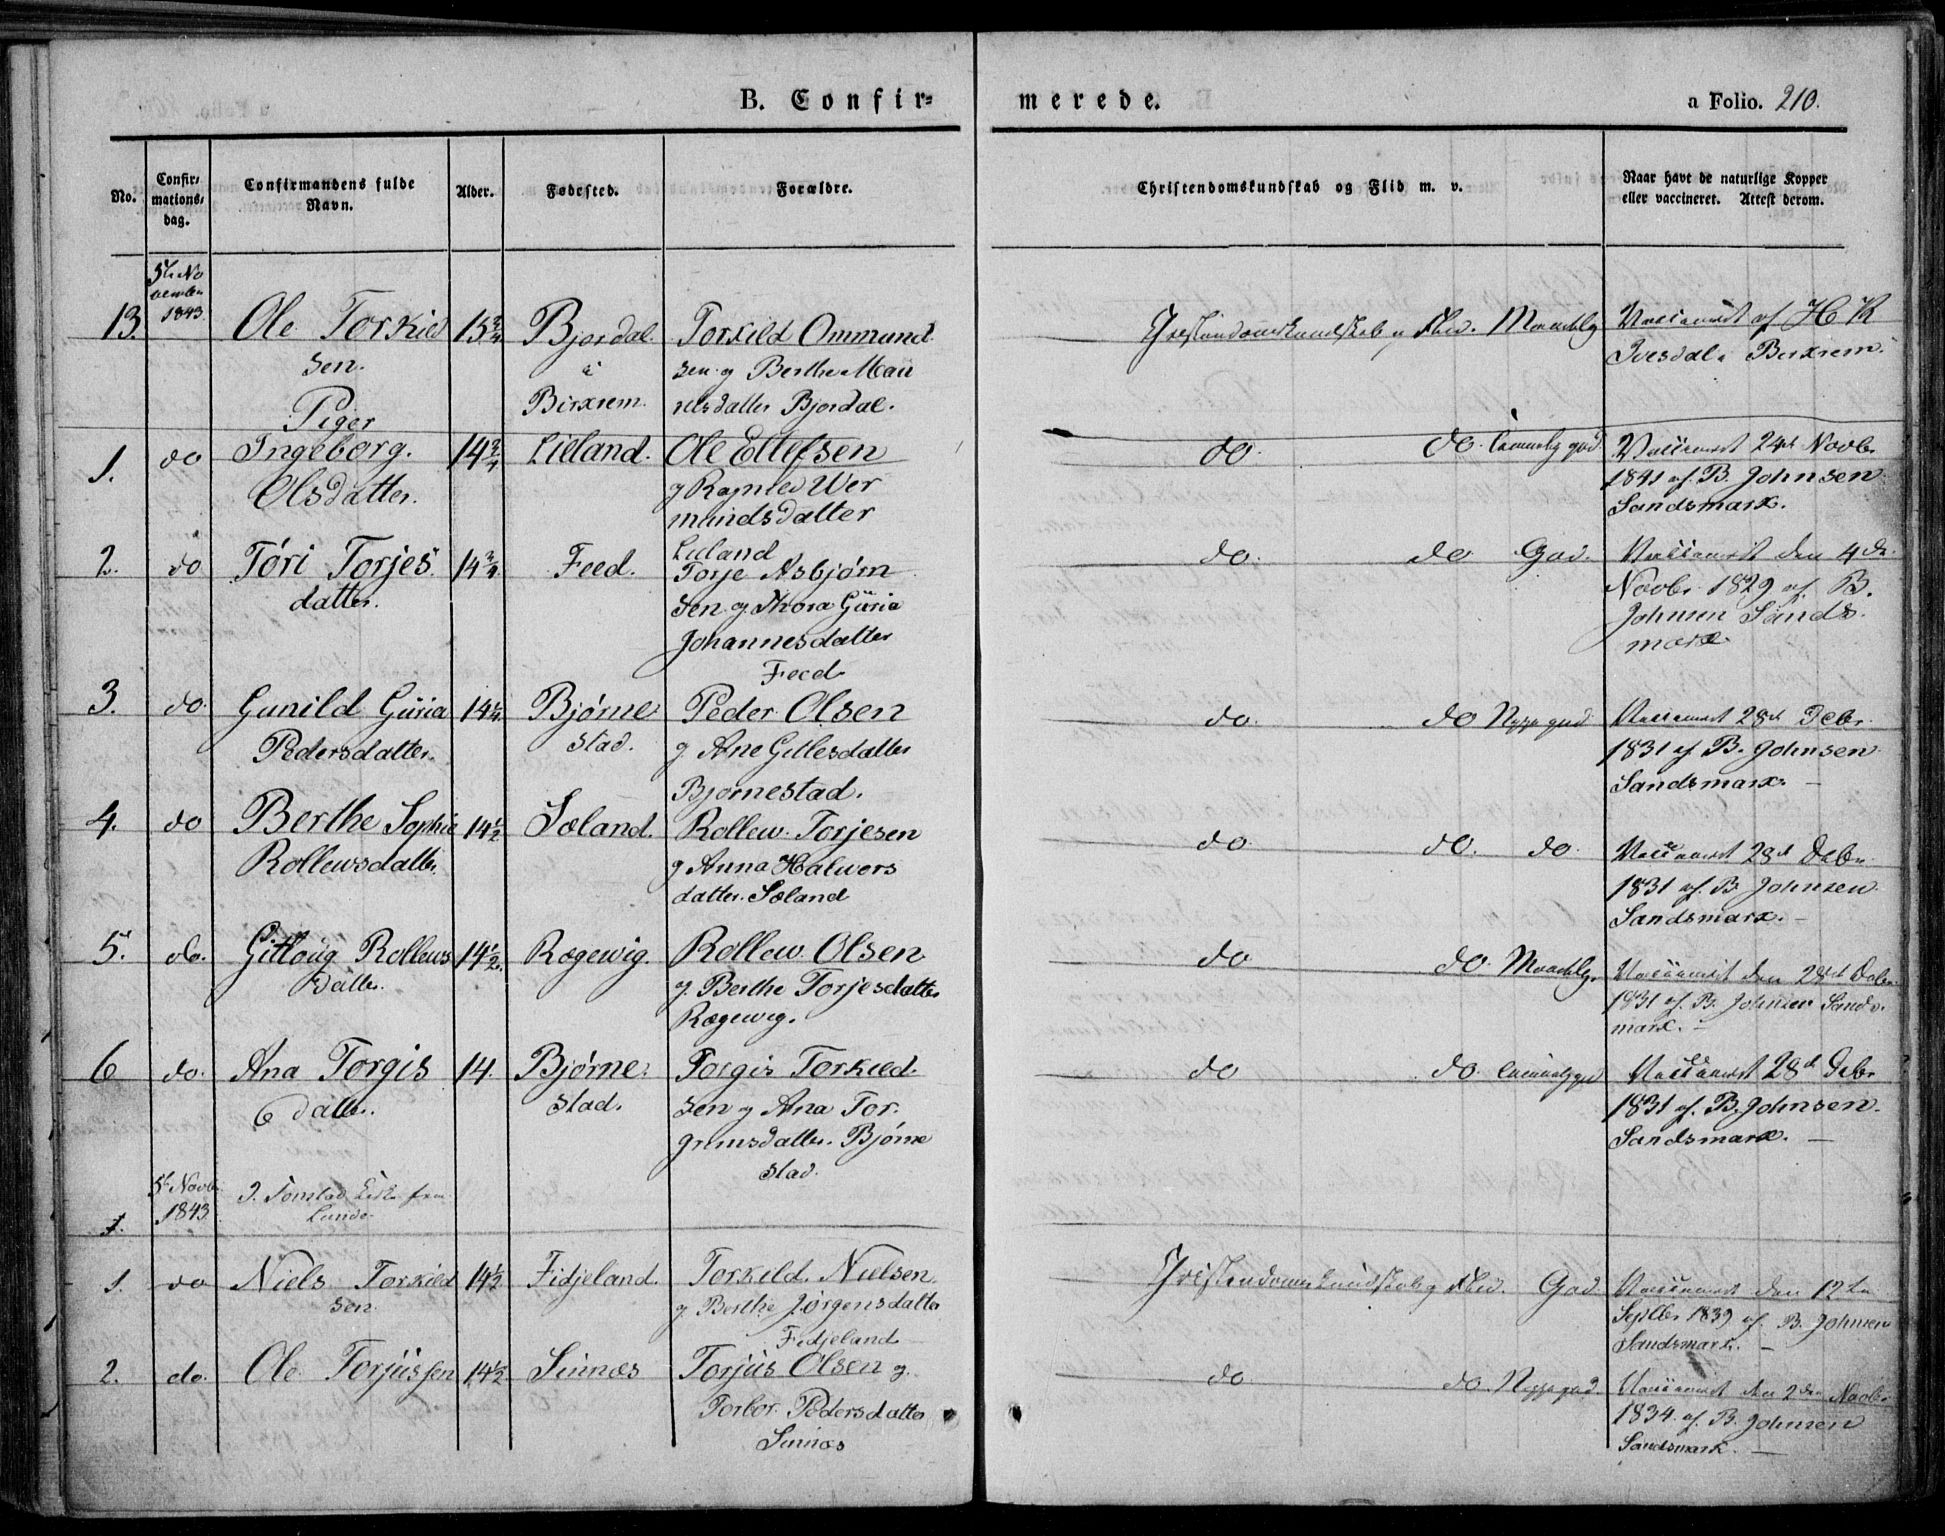 B. Confir=
merede.
a Folio. 210.
No.
Confir-
mations-
dag.
Confirmandens fulde
Navn.
Alder.
Fødested.
Forældre.
Christendomskundskab og Flid m. v.
Naar havt de naturlige Kopper
eller vaccineret. Attest derom.
13.
5te No
vember
1843
Ole Torkild
sen.
15 3/4
Bjordal
i
Birkrem.
Torkild Ommund
sen og Berthe
nelsdatter Bjordal.
Christendomskundskab og Flid. Maadelig
Vaccineret af H R
Ivesdal i Birkrem.
Piger
1. do
Ingeborg.
Olsdatter.
14 3/4
Lieland.
Ole Ellefsen
og Ragnild Wer
mundsdatter
Lieland
do. do. temmelig god.
Vaccineret 24de Novbr
1841 af B. Johnsen
Sandsmark.
2. do
Tóri Torjes
datter.
14 3/4
Feed.
Torje Asbjørn
sen og Thora Güria
Johannesdatter
Feed
do. do God.
Vaccineret den 4de
Novbr 1829 af B.
Johnsen Sands
mark
3. do.
Gunild Güria
Pedersdatter.
14 1/4
Bjørne
stad.
Peder Olsen
og Ane Gitlesdatter
Bjørnestad.
do. do god
Vaccineret 28de Debr
1831 af B. Johnsen
Sandsmark. —
4. do
Berthe Sophie
Rollewsdatter.
14 1/2
Sæland.
Rollew Torjesen
og Anna Halvors
datter Sæland
do do. do.
Vaccineret 28de Debr
1831 af B. Johnsen
Sandsmark. —
5. do.
Gitloug Rollews
datter.
14 1/2
Rægewig.
Rollew Olsen
og Berthe Torjesdatter
Rægewig.
do do Maadelig.
Vaccineret den 28de Debr
1831 af B. Johnsen Sands
mark. —
6 do.
Ana Torgis
datter.
14.
Bjørne
stad.
Torgis Torkild
sen og Ana Tor
grimsdatter Bjørne
stad.
do do temmelig god
Vaccineret 28de Debr
1831 af B. Johnsen.
Sandsmark. —
5te Novbr
1843
I Tonstad Kirke fra
Lunde
1. do
Niels Torkild
sen.
14 1/2
Fidjeland.
Torkild Nielsen
og Berthe Jørgensdatter
Fidjeland
Christendomskundskab og Flid. God.
Vaccineret den 12te
Septbr 1839 af B. Johnsen
Sandsmark. —
2. do.
Ole Torjüssen
14 1/2
Sinnæs
Torjüs Olsen og
Torbor Pedersdatter
Sinnæs
do do. god.
Vaccineret den 2den Novbr
1834 af B. Johnsen
Sandsmark. —